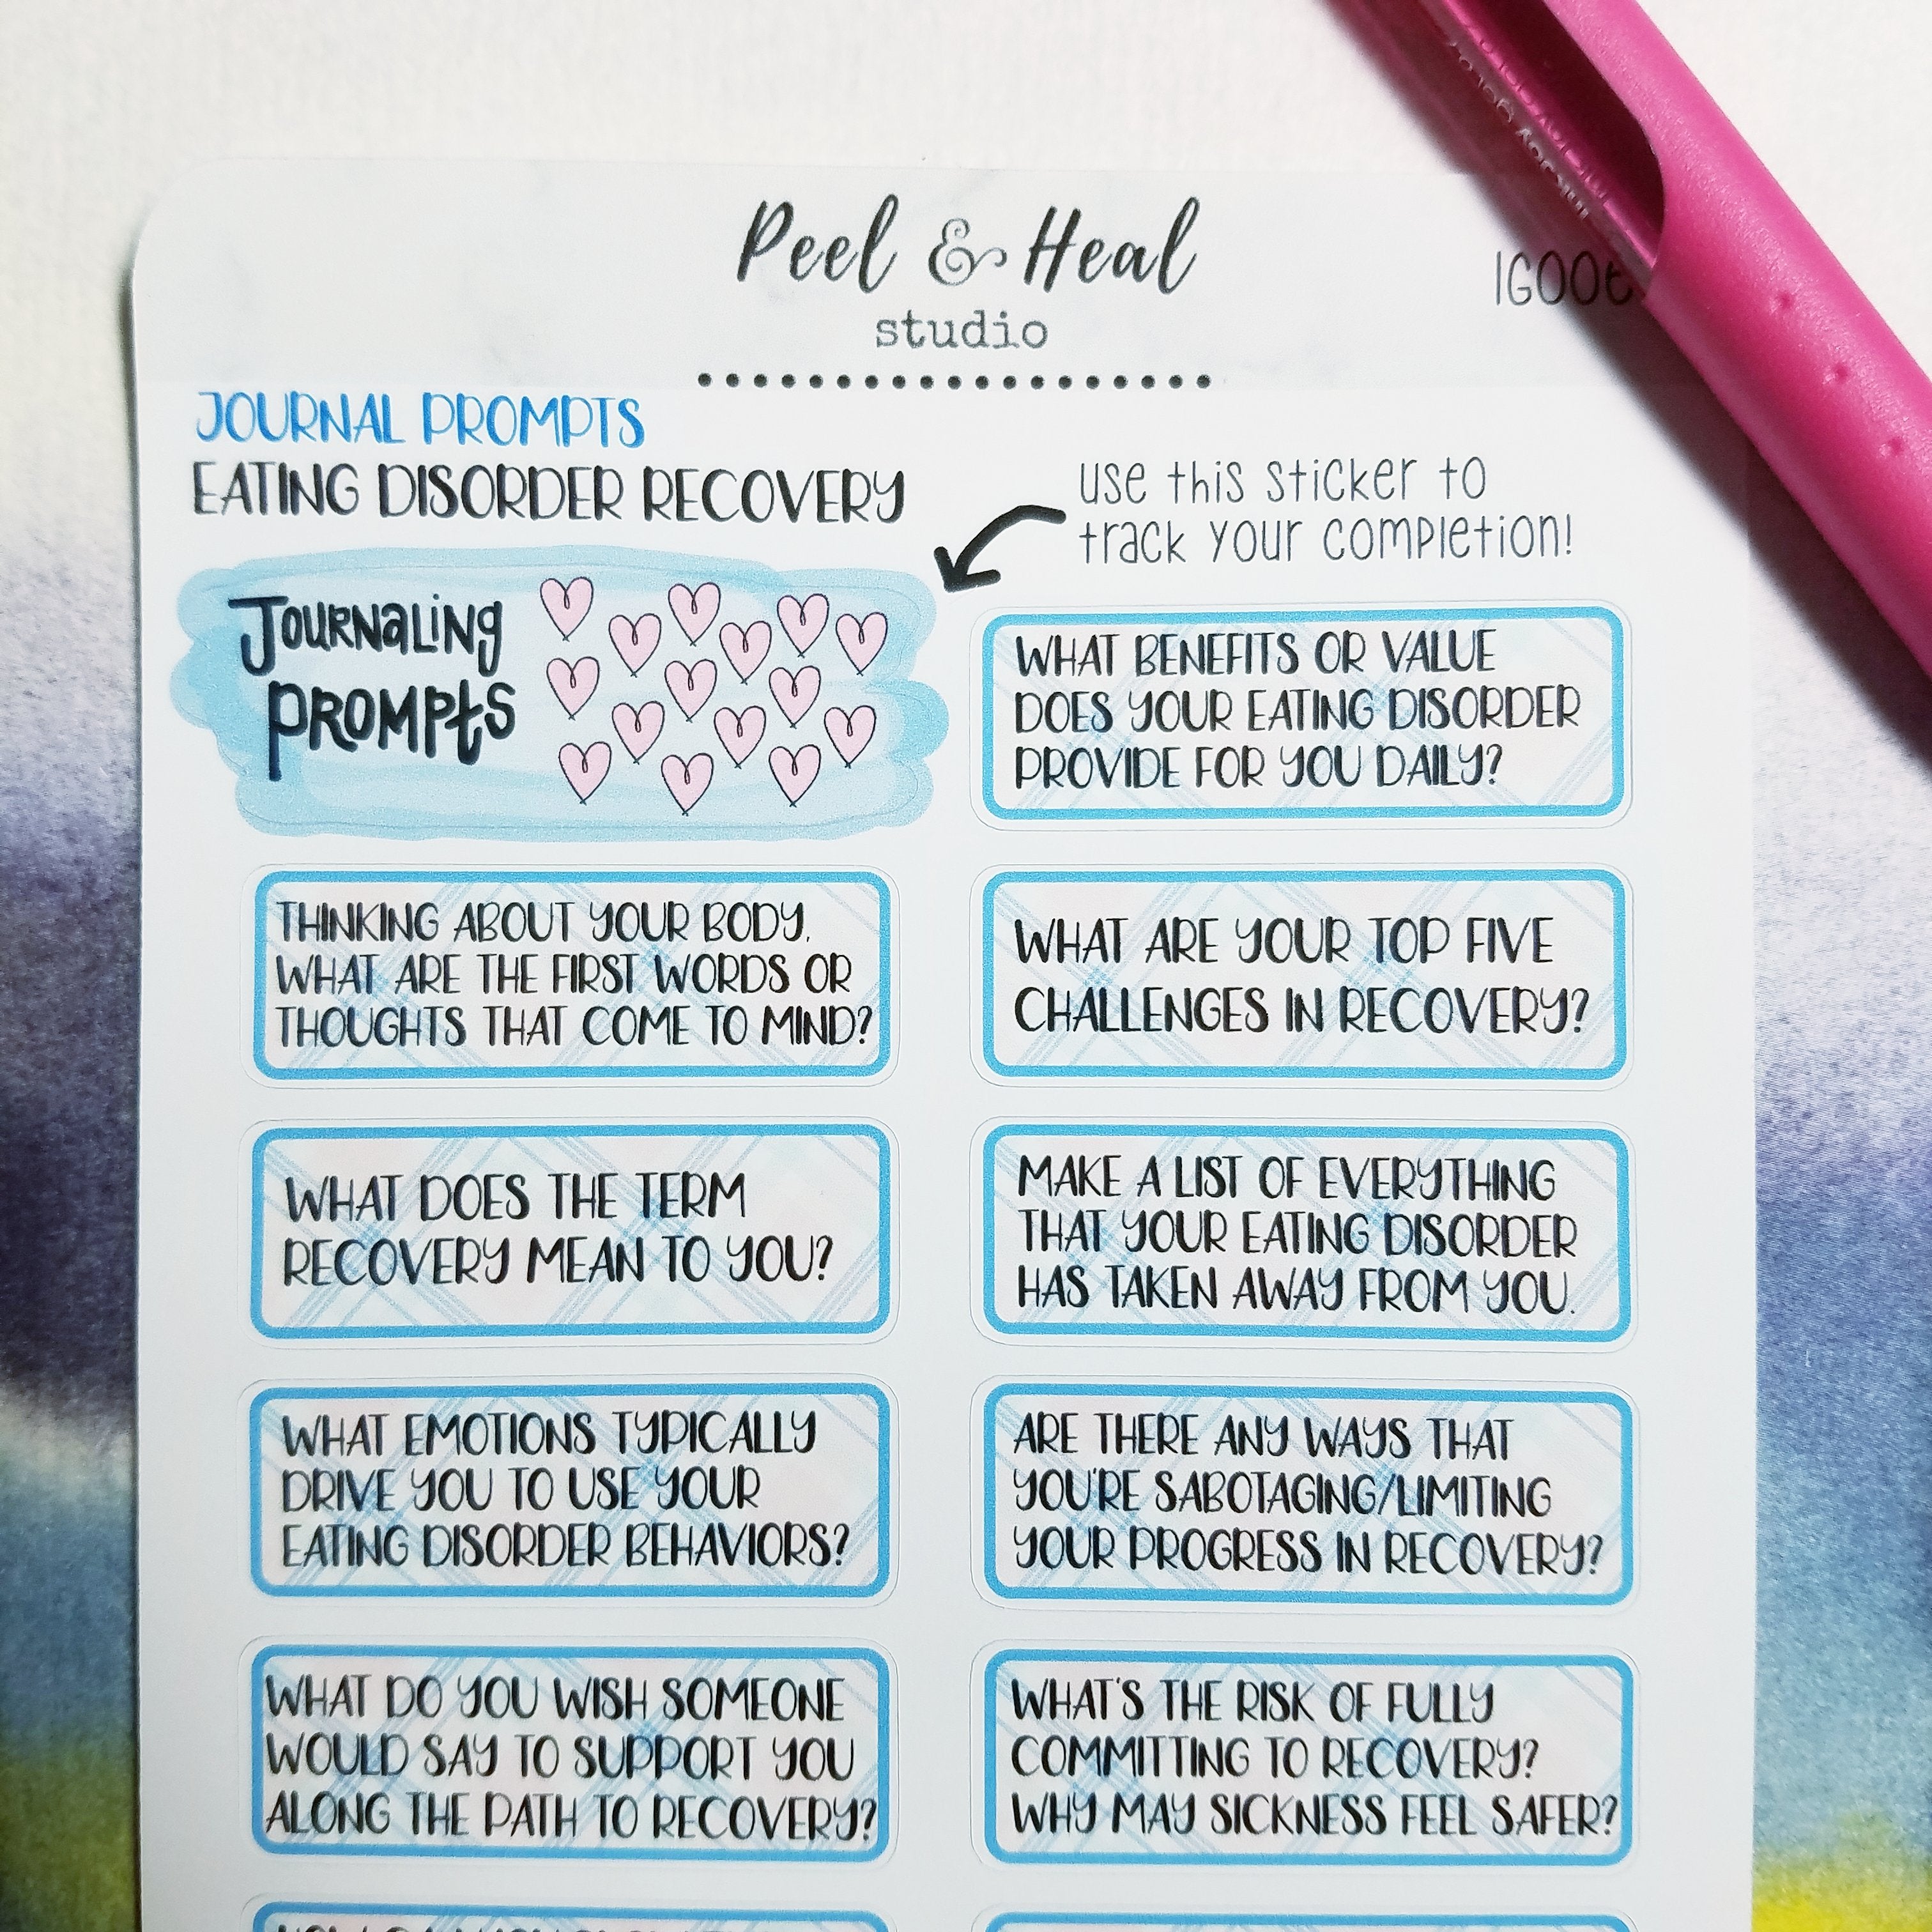 Peel & Heal
studio
JOURNAL PROMPTS
EATING DISORDER RECOVERY
use this sticker to
track your completion!
Journaling
Prompts
WHAT BENEFITS OR VALUE
DOES YOUR EATING DISORDER
PROVIDE FOR YOU DAILY?
THINKING ABOUT YOUR BODY,
WHAT ARE THE FIRST WORDS OR
THOUGHTS THAT COME TO MIND?
WHAT ARE YOUR TOP FIVE
CHALLENGES IN RECOVERY?
WHAT DOES THE TERM
RECOVERY MEAN TO YOU?
MAKE A LIST OF EVERYTHING
THAT YOUR EATING DISORDER
HAS TAKEN AWAY FROM YOU.
WHAT EMOTIONS TYPICALLY
DRIVE YOU TO USE YOUR
EATING DISORDER BEHAVIORS?
ARE THERE ANY WAYS THAT
YOU'RE SABOTAGING/LIMITING
YOUR PROGRESS IN RECOVERY?
WHAT DO YOU WISH SOMEONE
WOULD SAY TO SUPPORT YOU
ALONG THE PATH TO RECOVERY?
WHAT'S THE RISK OF FULLY
COMMITTING TO RECOVERY?
WHY MAY SICKNESS FEEL SAFER?